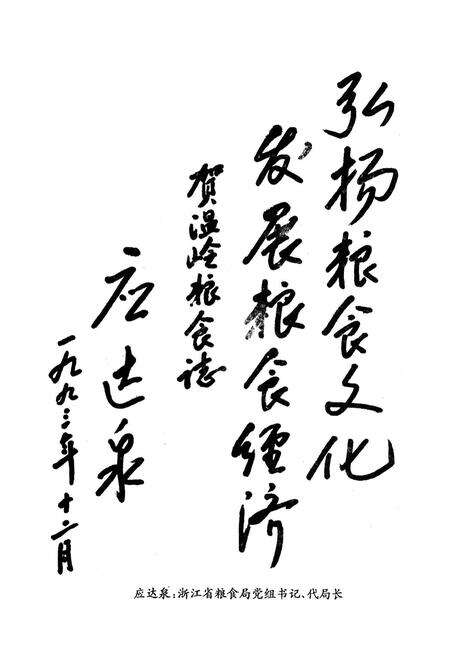 弘扬粮食文化
发展粮食经济
贺温岭粮食誌
应达泉
一九九三年十二月
应达泉:浙江省粮食局党组书记、代局长